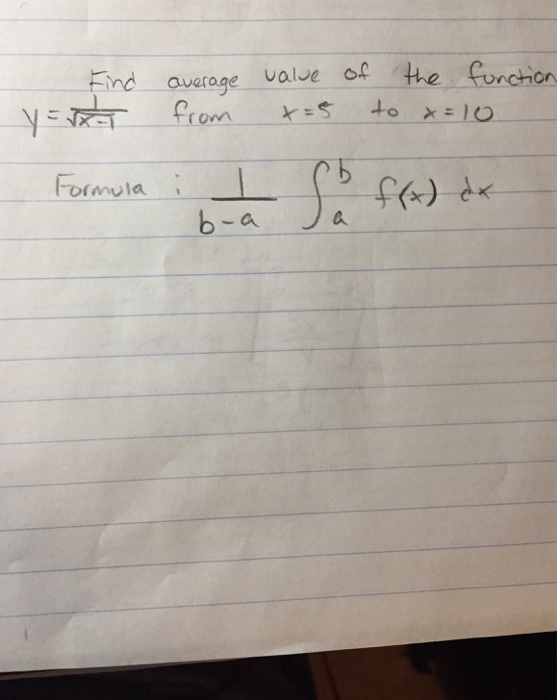 Find average value of the function
y = 1/√x-1 from x=5 to x=10
Formula : 1/b-a ∫ₐᵇ f(x) dx